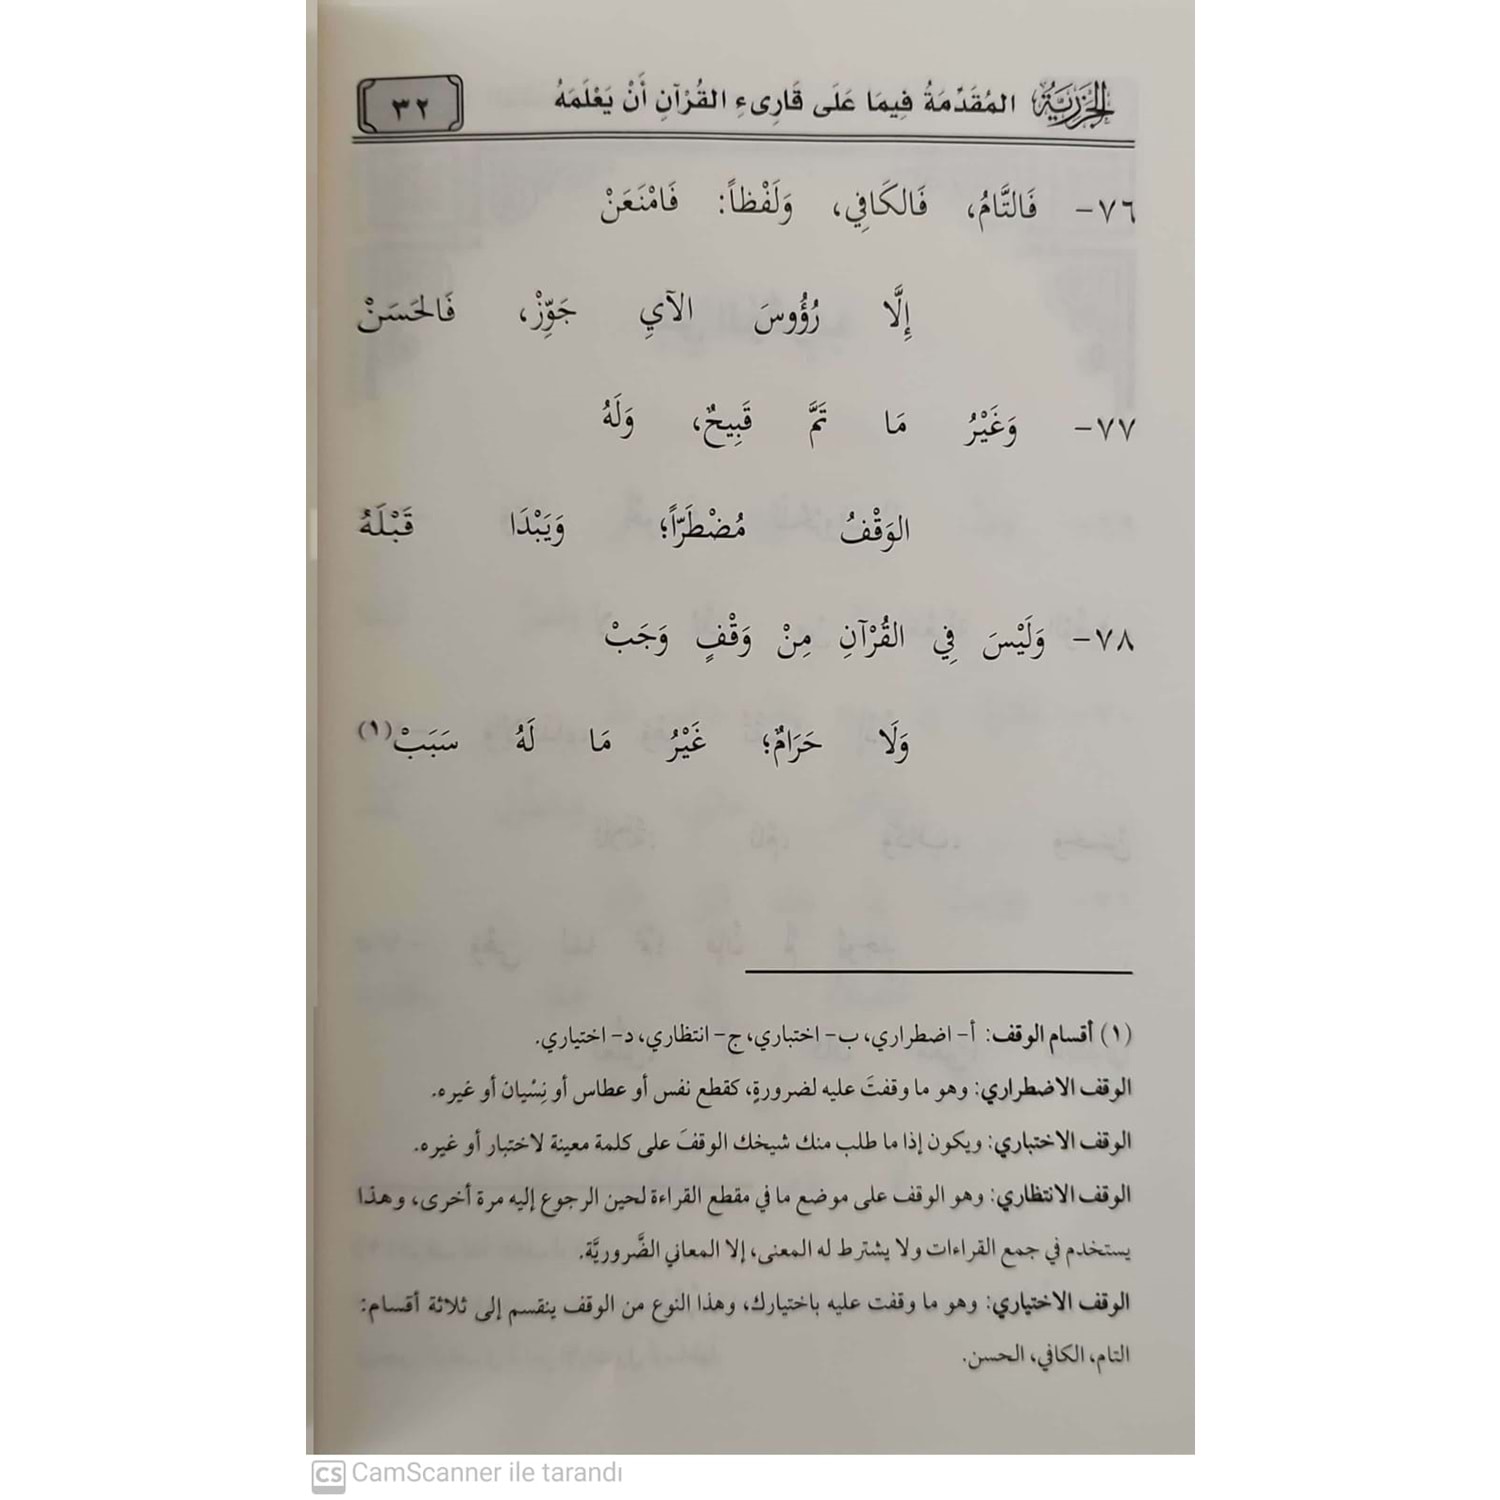 الجزرية المُقَدِّمَةُ فِيمَا عَلَى قَارِىءِ القُرْآنِ أَنْ يَعْلَمَهُ ٣٢
٧٦- فَالتَّامُ، فَالكَافِي، وَلَفْظاً: فَامْنَعَنْ
إِلَّا رُؤُوسَ الآيِ جَوِّزْ، فَالحَسَنْ
٧٧- وَغَيْرُ مَا تَمَّ قَبِيحٌ، وَلَهُ
الوَقْفُ مُضْطَرّاً؛ وَيَبْدَا قَبْلَهُ
٧٨- وَلَيْسَ فِي القُرْآنِ مِنْ وَقْفٍ وَجَبْ
وَلَا حَرَامٌ؛ غَيْرُ مَا لَهُ سَبَبْ(١)
(١) أقسام الوقف: أ- اضطراري، ب- اختباري، ج- انتظاري، د- اختياري.
الوقف الاضطراري: وهو ما وقفتَ عليه لضرورةٍ، كقطع نفس أو عطاس أو نِسْيان أو غيره.
الوقف الاختباري: ويكون إذا ما طلب منك شيخك الوقفَ على كلمة معينة لاختبار أو غيره.
الوقف الانتظاري: وهو الوقف على موضع ما في مقطع القراءة لحين الرجوع إليه مرة أخرى، وهذا
يستخدم في جمع القراءات ولا يشترط له المعنى، إلا المعاني الضَّروريَّة.
الوقف الاختياري: وهو ما وقفت عليه باختيارك، وهذا النوع من الوقف ينقسم إلى ثلاثة أقسام:
التام، الكافي، الحسن.
CS CamScanner ile tarandı